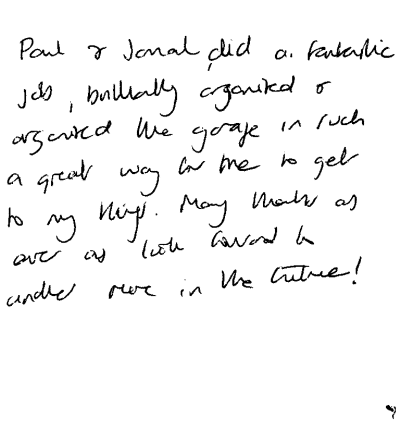 Paul & Jamal did a fantastic
job, brilliantly organised &
organised the garage in such
a great way for me to get
to my things. Many thanks as
ever as look forward to
another move in the future!